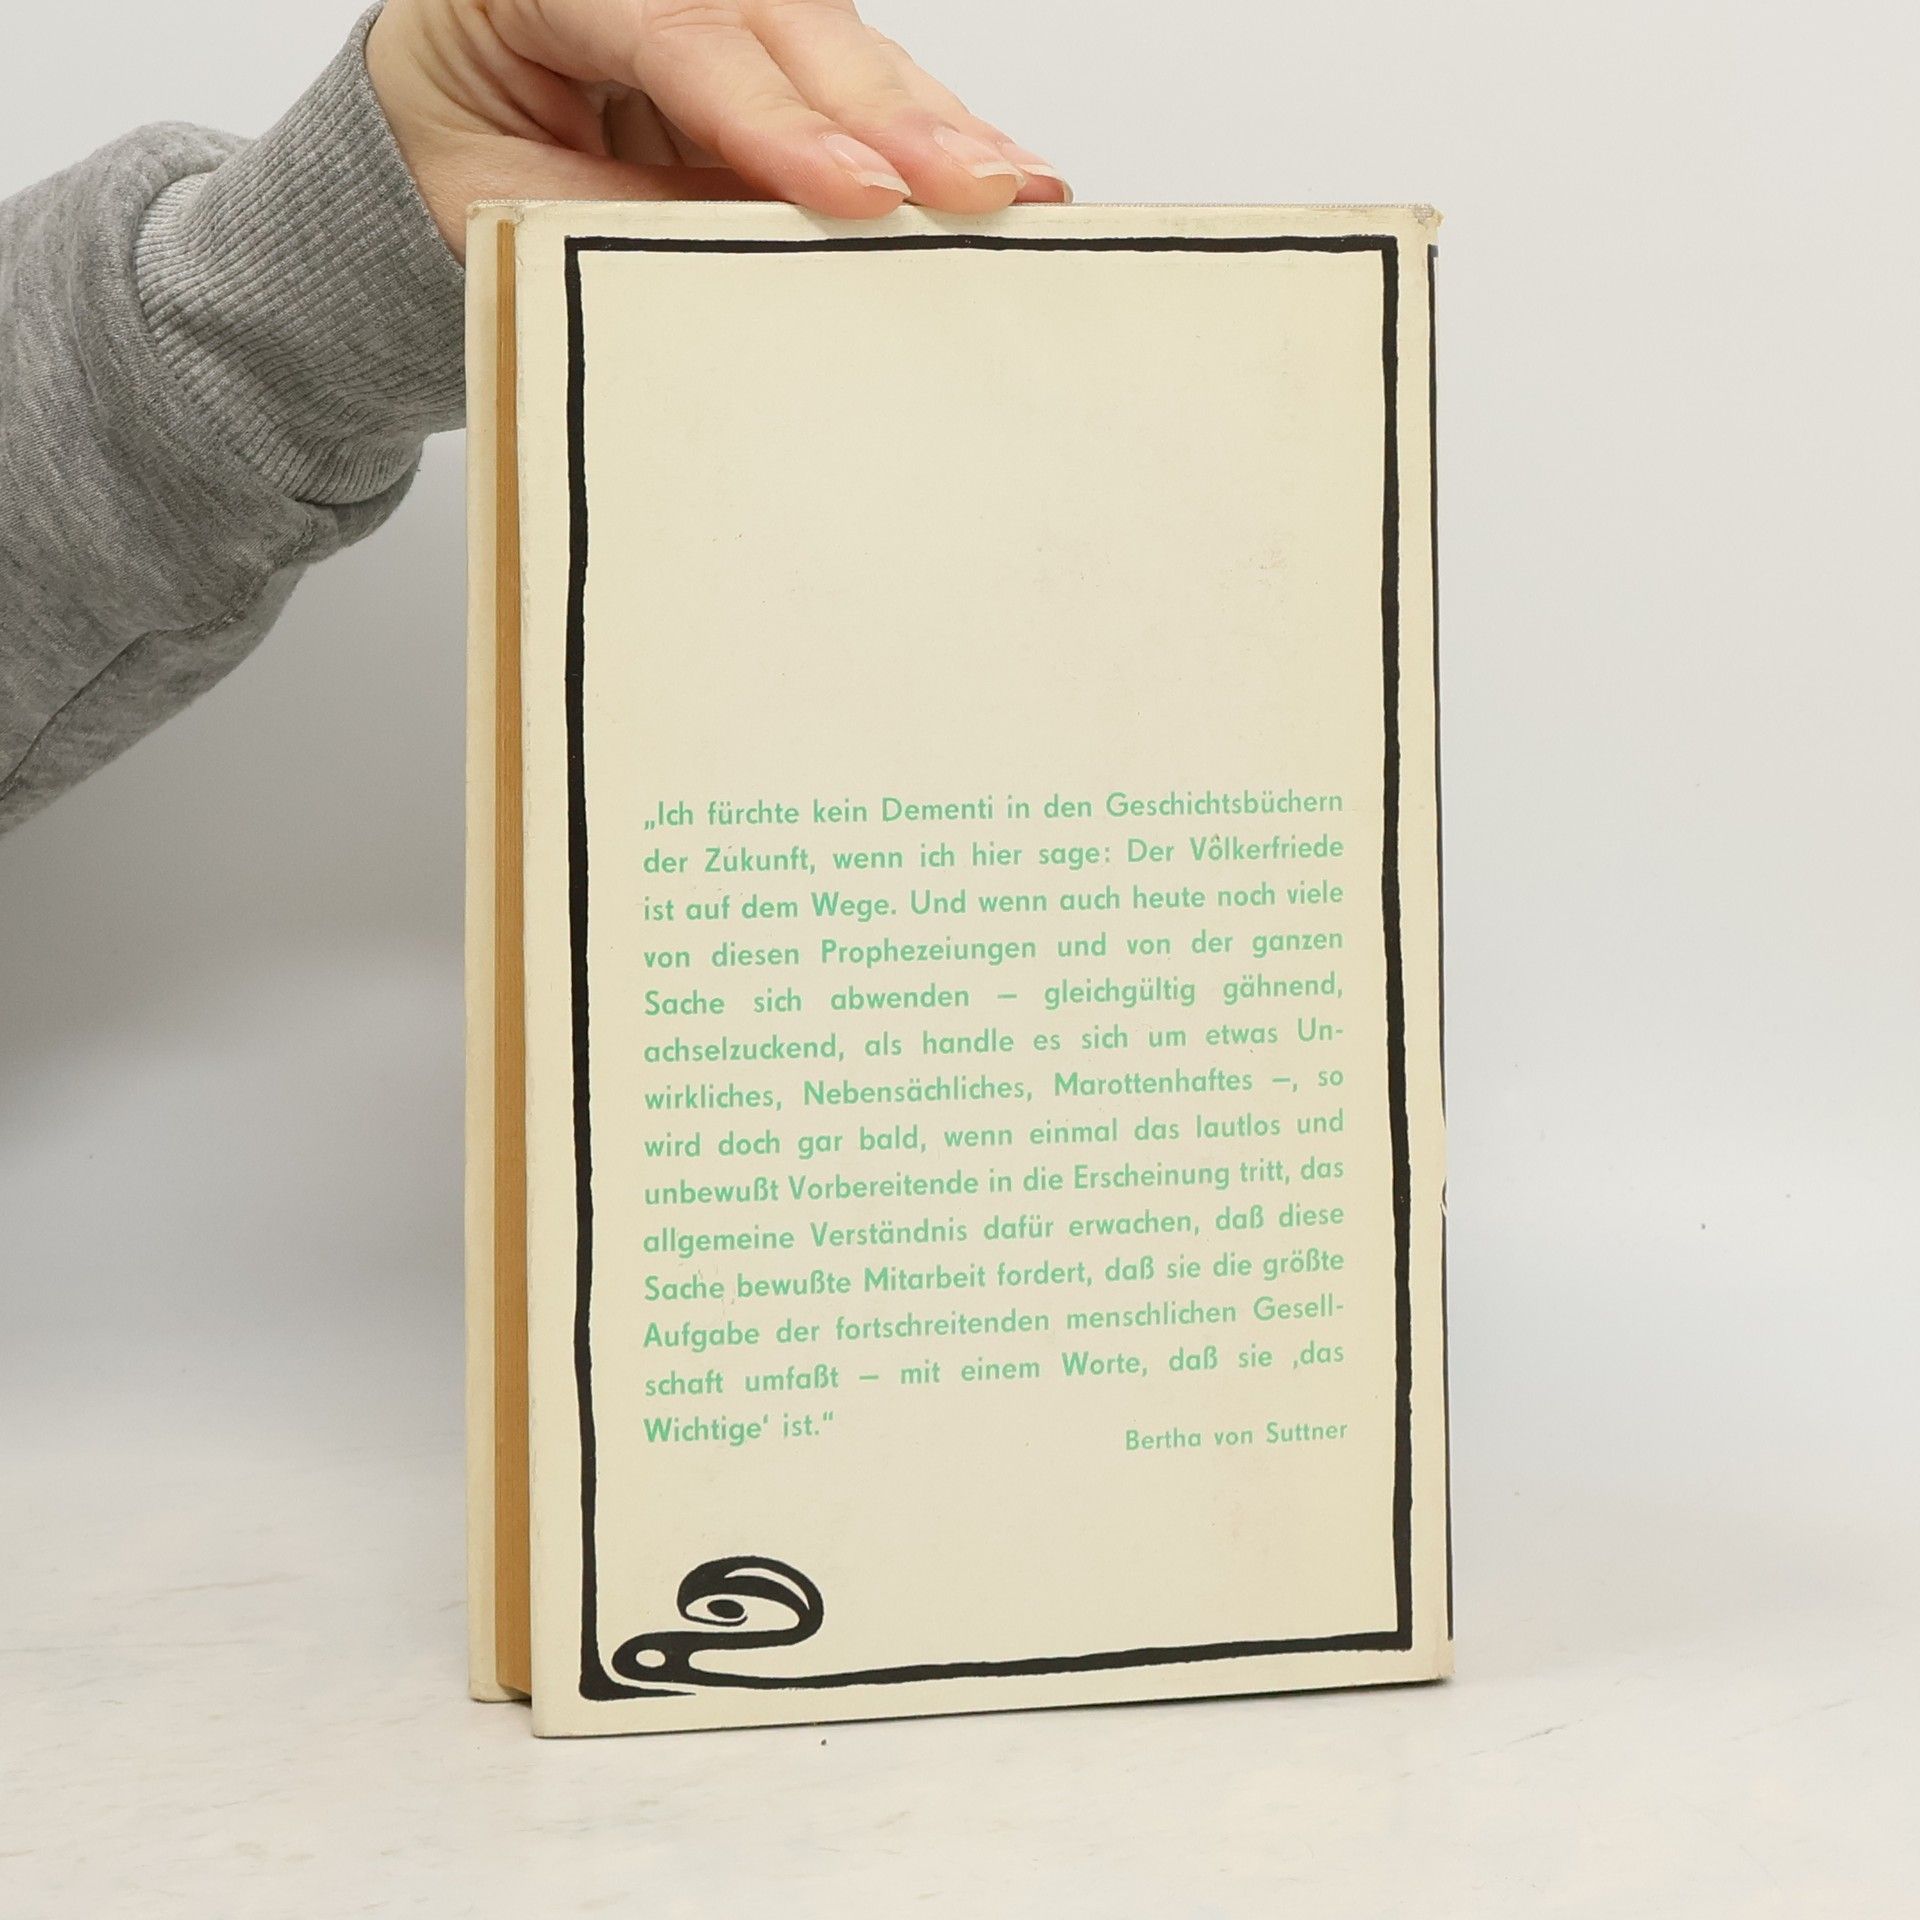 „Ich fürchte kein Dementi in den Geschichtsbüchern
der Zukunft, wenn ich hier sage: Der Völkerfriede
ist auf dem Wege. Und wenn auch heute noch viele
von diesen Prophezeiungen und von der ganzen
Sache sich abwenden – gleichgültig gähnend,
achselzuckend, als handle es sich um etwas Un-
wirkliches, Nebensächliches, Marottenhaftes –, so
wird doch gar bald, wenn einmal das lautlos und
unbewußt Vorbereitende in die Erscheinung tritt, das
allgemeine Verständnis dafür erwachen, daß diese
Sache bewußte Mitarbeit fordert, daß sie die größte
Aufgabe der fortschreitenden menschlichen Gesell-
schaft umfaßt – mit einem Worte, daß sie ‚das
Wichtige‘ ist.“
Bertha von Suttner